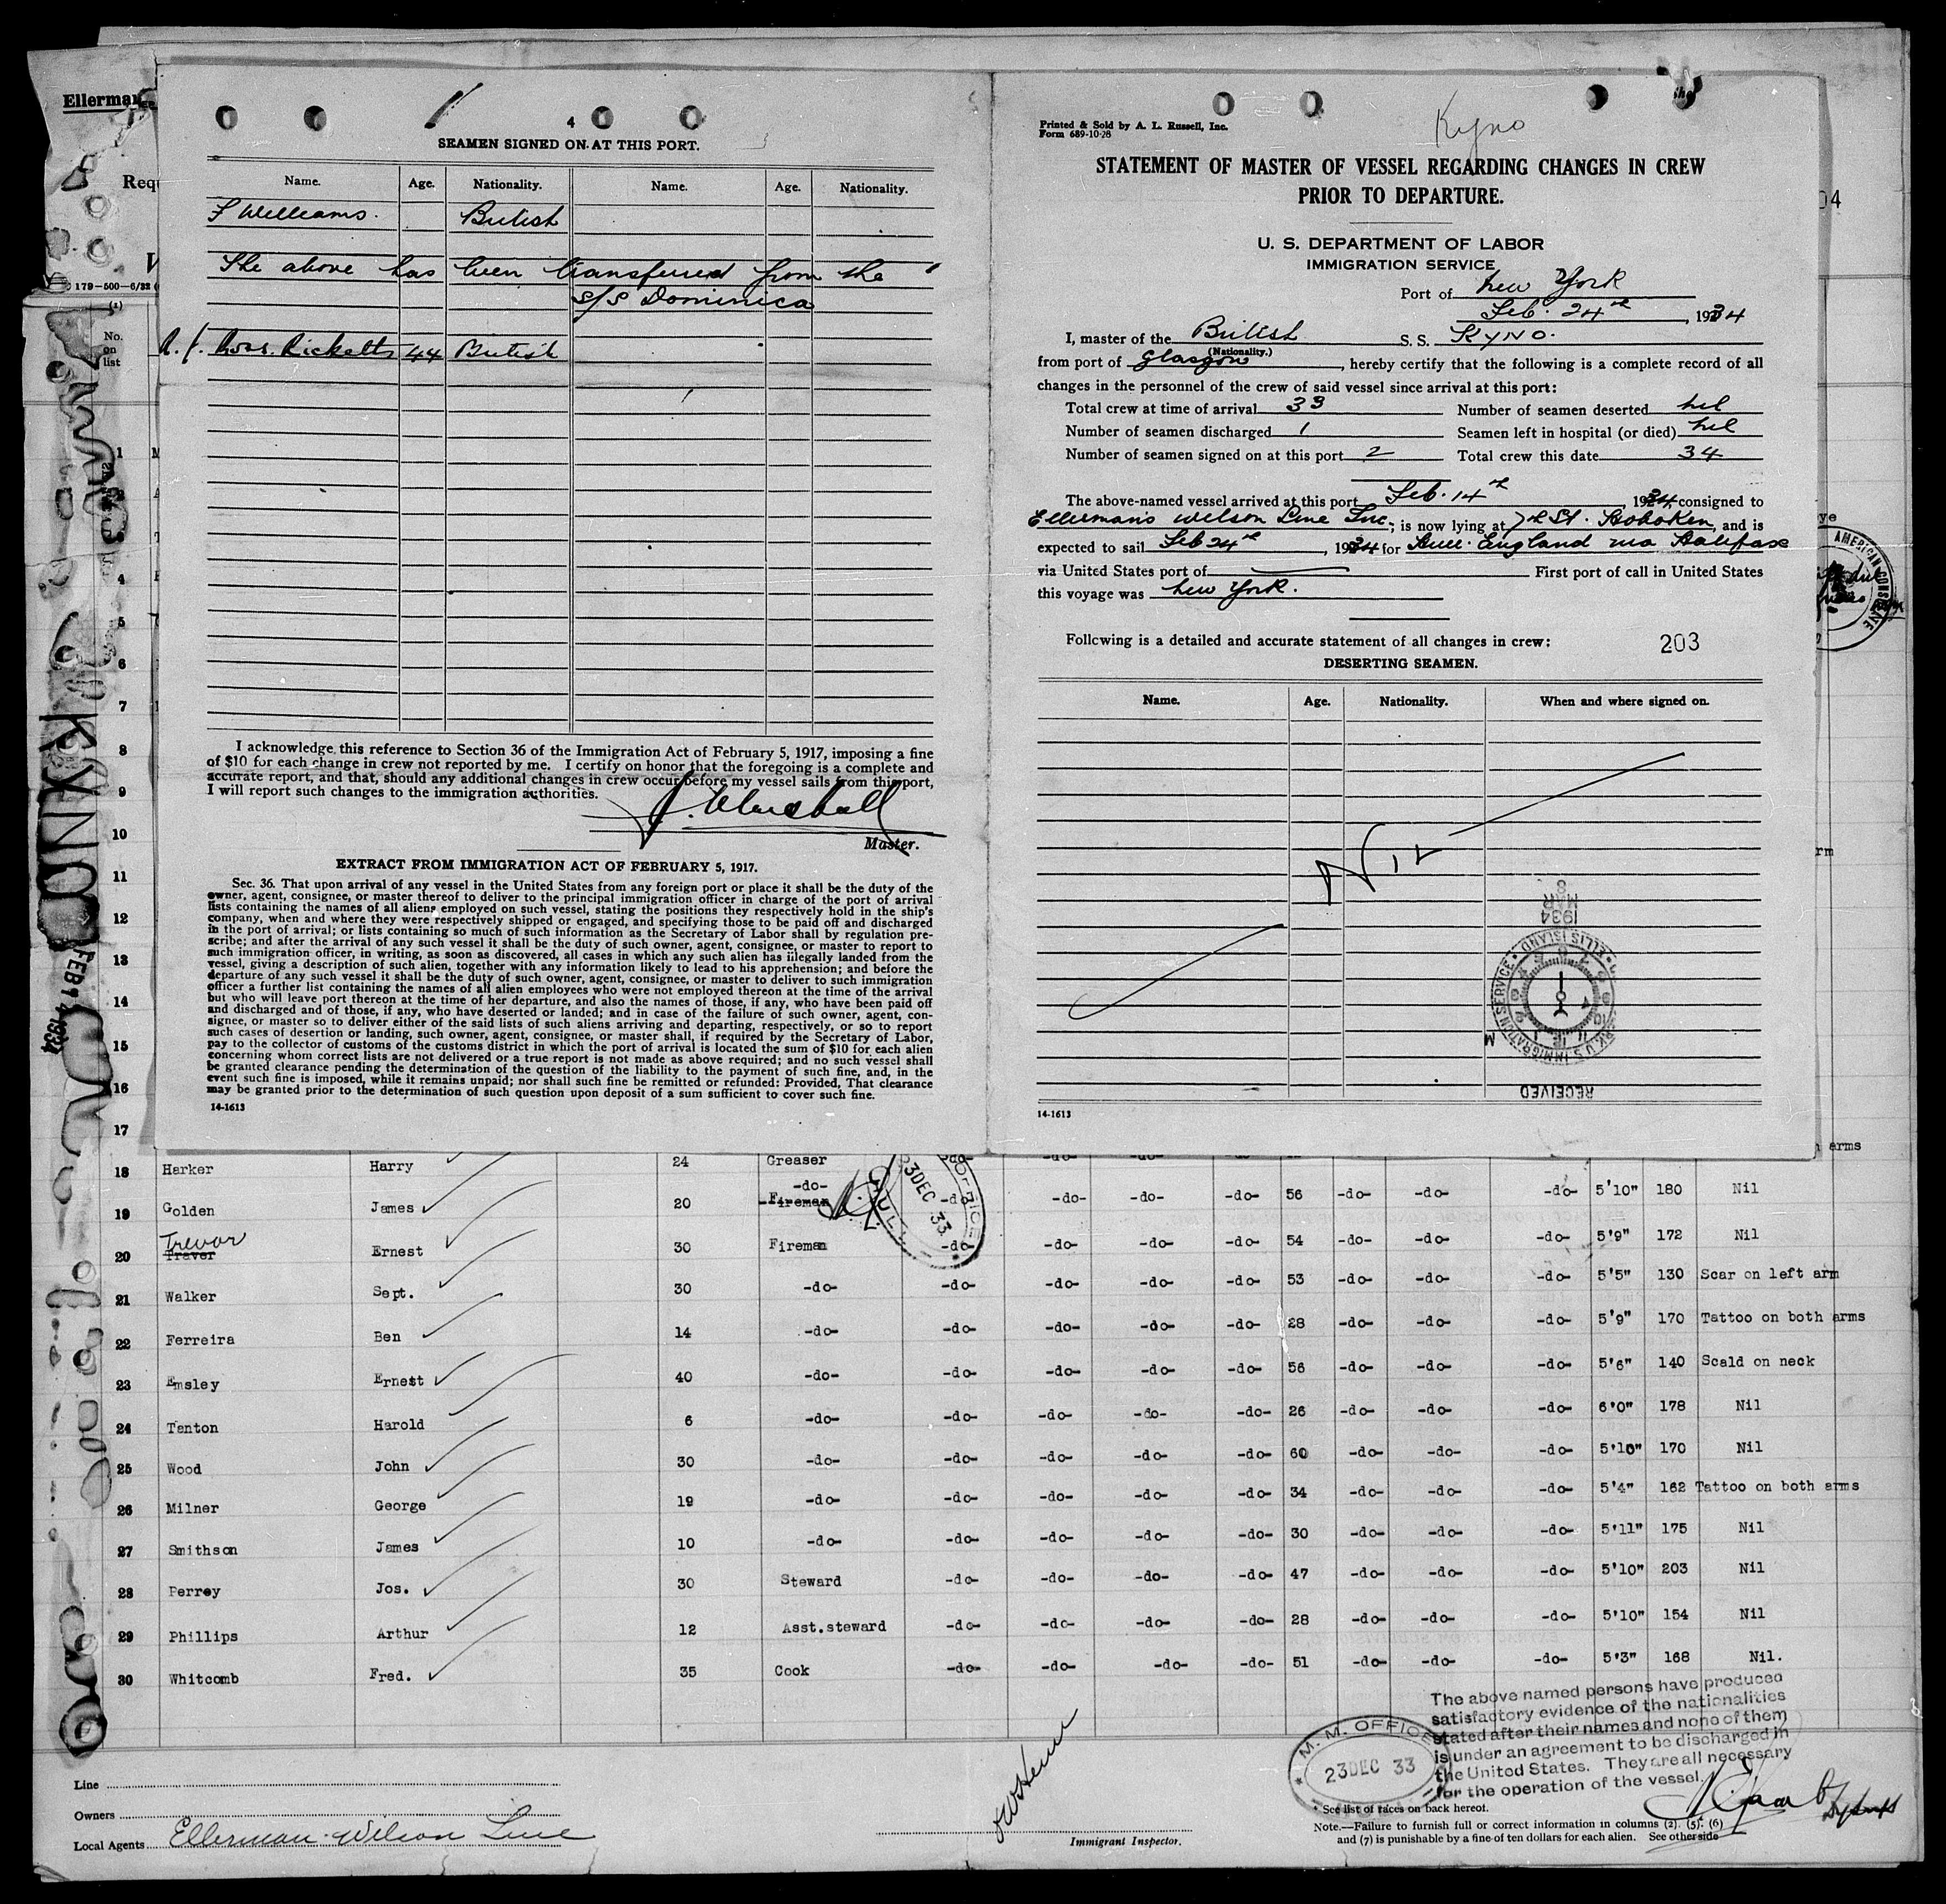 Ellerman
4
SEAMEN SIGNED ON AT THIS PORT.
Name. Age. Nationality. Name. Age. Nationality.
F Williams. British
The above has been transferred from the
S/S Dominica
Ricketts 44 British
I acknowledge this reference to Section 36 of the Immigration Act of February 5, 1917, imposing a fine
of $10 for each change in crew not reported by me. I certify on honor that the foregoing is a complete and
accurate report, and that, should any additional changes in crew occur before my vessel sails from this port,
I will report such changes to the immigration authorities.
Master.
EXTRACT FROM IMMIGRATION ACT OF FEBRUARY 5, 1917.
Sec. 36. That upon arrival of any vessel in the United States from any foreign port or place it shall be the duty of the
owner, agent, consignee, or master thereof to deliver to the principal immigration officer in charge of the port of arrival
lists containing the names of all aliens employed on such vessel, stating the positions they respectively hold in the ship's
company, when and where they were respectively shipped or engaged, and specifying those to be paid off and discharged
in the port of arrival; or lists containing so much of such information as the Secretary of Labor shall by regulation pre-
scribe; and after the arrival of any such vessel it shall be the duty of such owner, agent, consignee, or master to report to
such immigration officer, in writing, as soon as discovered, all cases in which any such alien has illegally landed from the
vessel, giving a description of such alien, together with any information likely to lead to his apprehension; and before the
departure of any such vessel it shall be the duty of such owner, agent, consignee, or master to deliver to such immigration
officer a further list containing the names of all alien employees who were not employed thereon at the time of the arrival
but who will leave port thereon at the time of her departure, and also the names of those, if any, who have been paid off
and discharged and of those, if any, who have deserted or landed; and in case of the failure of such owner, agent, con-
signee, or master so to deliver either of the said lists of such aliens arriving and departing, respectively, or so to report
such cases of desertion or landing, such owner, agent, consignee, or master shall, if required by the Secretary of Labor,
pay to the collector of customs of the customs district in which the port of arrival is located the sum of $10 for each alien
concerning whom correct lists are not delivered or a true report is not made as above required; and no such vessel shall
be granted clearance pending the determination of the question of the liability to the payment of such fine, and, in the
event such fine is imposed, while it remains unpaid; nor shall such fine be remitted or refunded: Provided, That clearance
may be granted prior to the determination of such question upon deposit of a sum sufficient to cover such fine.
14-1613
Printed & Sold by A. L. Russell, Inc.
Form 689-10-28
Kyno
STATEMENT OF MASTER OF VESSEL REGARDING CHANGES IN CREW
PRIOR TO DEPARTURE.
U. S. DEPARTMENT OF LABOR
IMMIGRATION SERVICE
Port of New York
Feb. 24th, 1934
I, master of the British S. S. KYNO.
(Nationality.)
from port of Glasgow, hereby certify that the following is a complete record of all
changes in the personnel of the crew of said vessel since arrival at this port:
Total crew at time of arrival 33 Number of seamen deserted nil
Number of seamen discharged 1 Seamen left in hospital (or died) nil
Number of seamen signed on at this port 2 Total crew this date 34
The above-named vessel arrived at this port Feb. 14th 1934, consigned to
Ellerman's Wilson Line Inc.; is now lying at 7th St. Hoboken, and is
expected to sail Feb 24th, 1934 for Hull England via Halifax
via United States port of First port of call in United States
this voyage was New York.
Following is a detailed and accurate statement of all changes in crew: 203
DESERTING SEAMEN.
Name. Age. Nationality. When and where signed on.
Nil
RECEIVED
U.S. IMMIGRATION SERVICE
ELLIS ISLAND
1934 MAR 8
14-1613
179-500-6/32
(1)
No. on list
KYNO FEB 14 1934
AMERICAN CONS
04
1
4
5
6
7
8
9
10
11
12
13
14
15
16
17
arms
18 Harker Harry 24 Greaser -do- -do- -do-
19 Golden James 20 -do- Fireman -do- -do- -do- -do- 56 -do- -do- -do- 5'10" 180 Nil
20 Trevor Traver Ernest 30 Fireman -do- -do- -do- -do- 54 -do- -do- -do- 5'9" 172 Nil
21 Walker Sept. 30 -do- -do- -do- -do- -do- 53 -do- -do- -do- 5'5" 130 Scar on left arm
22 Ferreira Ben 14 -do- -do- -do- -do- -do- 28 -do- -do- -do- 5'9" 170 Tattoo on both arms
23 Emsley Ernest 40 -do- -do- -do- -do- -do- 56 -do- -do- -do- 5'6" 140 Scald on neck
24 Tenton Harold 6 -do- -do- -do- -do- -do- 26 -do- -do- -do- 6'0" 178 Nil
25 Wood John 30 -do- -do- -do- -do- -do- 60 -do- -do- -do- 5'10" 170 Nil
26 Milner George 19 -do- -do- -do- -do- -do- 34 -do- -do- -do- 5'4" 162 Tattoo on both arms
27 Smithson James 10 -do- -do- -do- -do- -do- 30 -do- -do- -do- 5'11" 175 Nil
28 Perrey Jos. 30 Steward -do- -do- -do- -do- 47 -do- -do- -do- 5'10" 203 Nil
29 Phillips Arthur 12 Asst.steward -do- -do- -do- -do- 28 -do- -do- -do- 5'10" 154 Nil
30 Whitcomb Fred. 35 Cook -do- -do- -do- -do- 51 -do- -do- -do- 5'3" 168 Nil.
23 DEC 33
HULL
The above named persons have produced
satisfactory evidence of the nationalities
stated after their names and none of them
is under an agreement to be discharged in
the United States. They are all necessary
for the operation of the vessel.
M. M. OFFICE
23 DEC 33
Line
Owners
Local Agents Ellerman-Wilson Line
Immigrant Inspector.
* See list of races on back hereof.
Note.—Failure to furnish full or correct information in columns (2), (5), (6)
and (7) is punishable by a fine of ten dollars for each alien. See other side